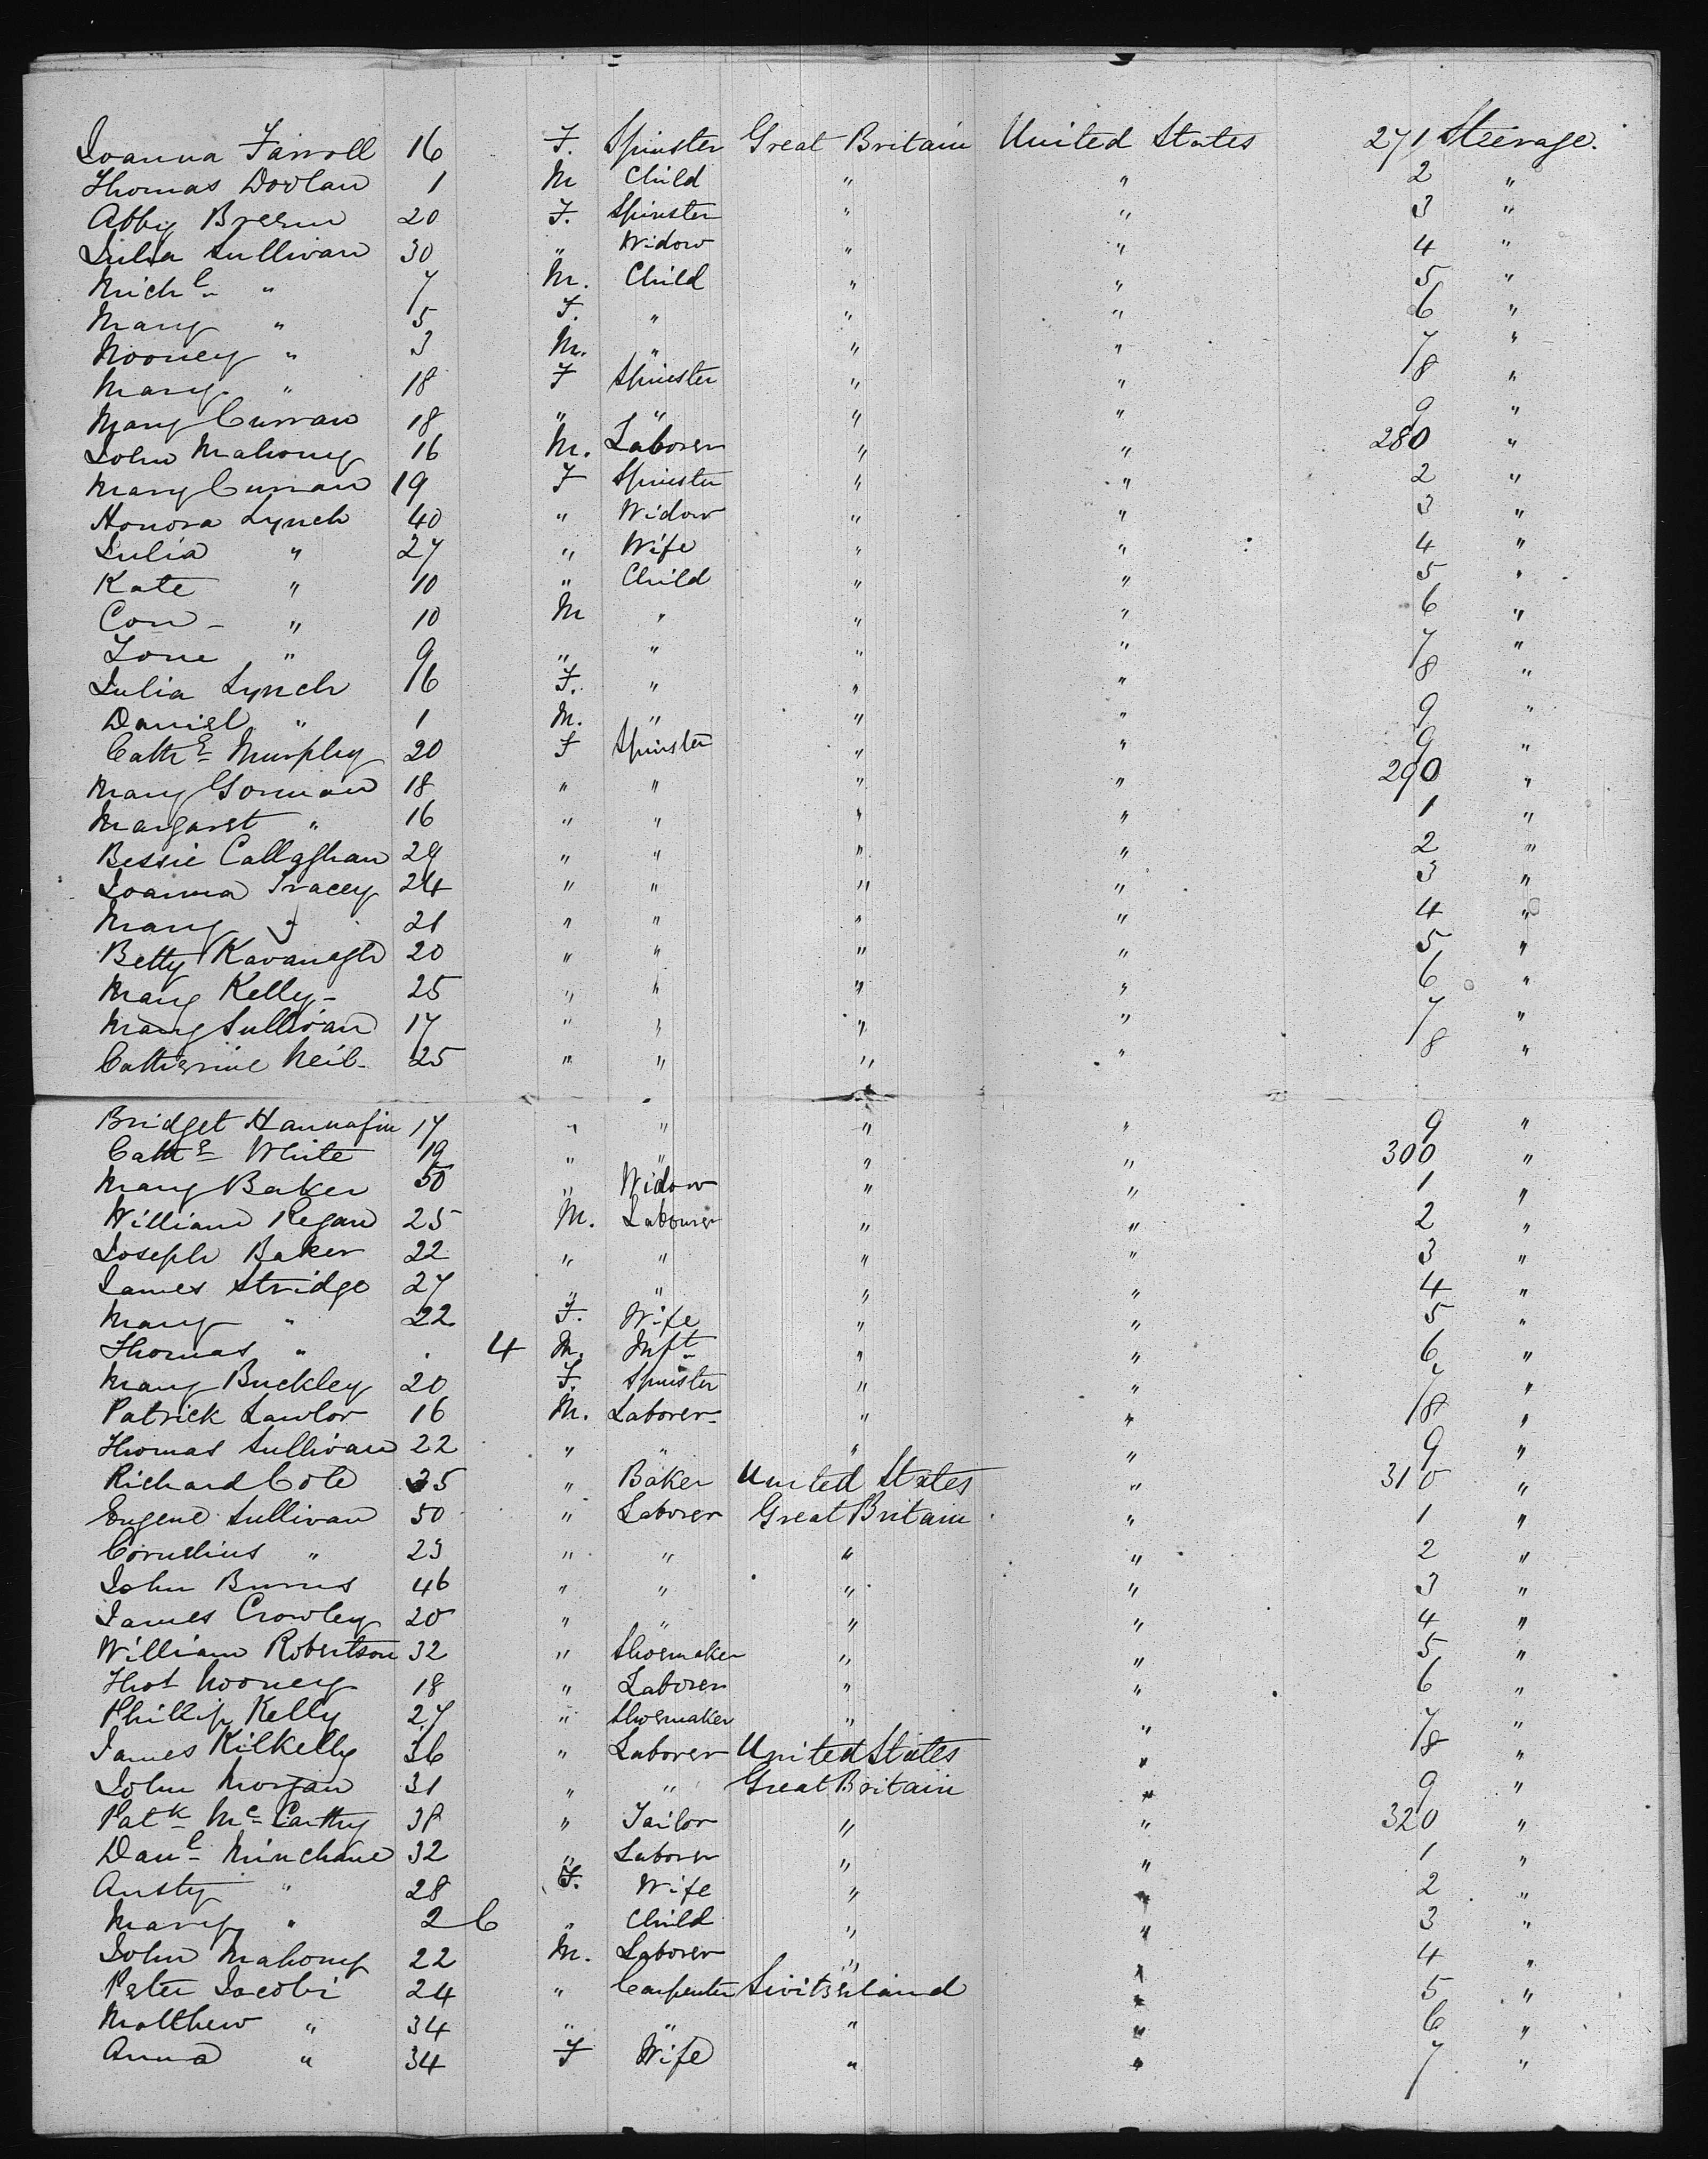 Joanna Farrell 16 F. Spinster Great Britain United States 271 Steerage.
Thomas Doolan 1 M Child " " 2 "
Abby Breen 20 F. Spinster " " 3 "
Julia Sullivan 30 " Widow " " 4 "
Michl " 7 M. Child " " 5 "
Mary " 5 F. " " " 6 "
Mooney " 3 M. " " " 7 "
Mary " 18 F Spinster " " 8 "
Mary Curran 18 " " " " 9 "
John Mahony 16 M. Laborer " " 280 "
Mary Curran 19 F Spinster " " 2 "
Honora Lynch 40 " Widow " " 3 "
Julia " 27 " Wife " " 4 "
Kate " 10 " Child " " 5 "
Con - " 10 M " " " 6 "
" 9 " " " " 7 "
Julia Lynch 16 F. " " " 8 "
Daniel " 1 M. " " " 9 "
Cathe Murphy 20 F Spinster " " 9 "
Mary Gorman 18 " " " " 290 "
Margaret " 16 " " " " 1 "
Bessie Callaghan 29 " " " " 2 "
Joanna Tracey 24 " " " " 3 "
Mary " 21 " " " " 4 "
Betty Kavanagh 20 " " " " 5 "
Mary Kelly - 25 " " " " 6 "
Mary Sullivan 17 " " " " 7 "
Catherine Neil - 25 " " " " 8 "
Bridget Hannafin 17 " " " " 9 "
Cathe White 19 " " " " 300 "
Mary Baker 50 " Widow " " 1 "
William Regan 25 M. Labourer " " 2 "
Joseph Baker 22 " " " " 3 "
James Stridge 27 " " " " 4 "
Mary " 22 F. Wife " " 5 "
Thomas " . 4 M. Inft " " 6 "
Mary Buckley 20 F. Spinster " " 7 "
Patrick Lawlor 16 M. Laborer - " " 8 "
Thomas Sullivan 22 " " " " 9 "
Richard Cole 35 " Baker United States " 310 "
Eugene Sullivan 50 " Laborer Great Britain " 1 "
Cornelius " 23 " " " " 2 "
John Burns 46 " " " " 3 "
James Crowley 20 " " " " 4 "
William Robertson 32 " Shoemaker " " 5 "
Thos Mooney 18 " Laborer " " 6 "
Phillip Kelly 27 " Shoemaker " " 7 "
James Kilkelly 36 " Laborer United States " 8 "
John Morgan 31 " " Great Britain " 9 "
Patk McCarthy 38 " Tailor " " 320 "
Danl Minchane 32 " Laborer " " 1 "
Austy " 28 F. Wife " " 2 "
Mary " 2 6 " Child " " 3 "
John Mahony 22 M. Laborer " " 4 "
Peter Jacobi 24 " Carpenter Switzerland " 5 "
Matthew " 34 " " " " 6 "
Anna " 34 F Wife " " 7 "